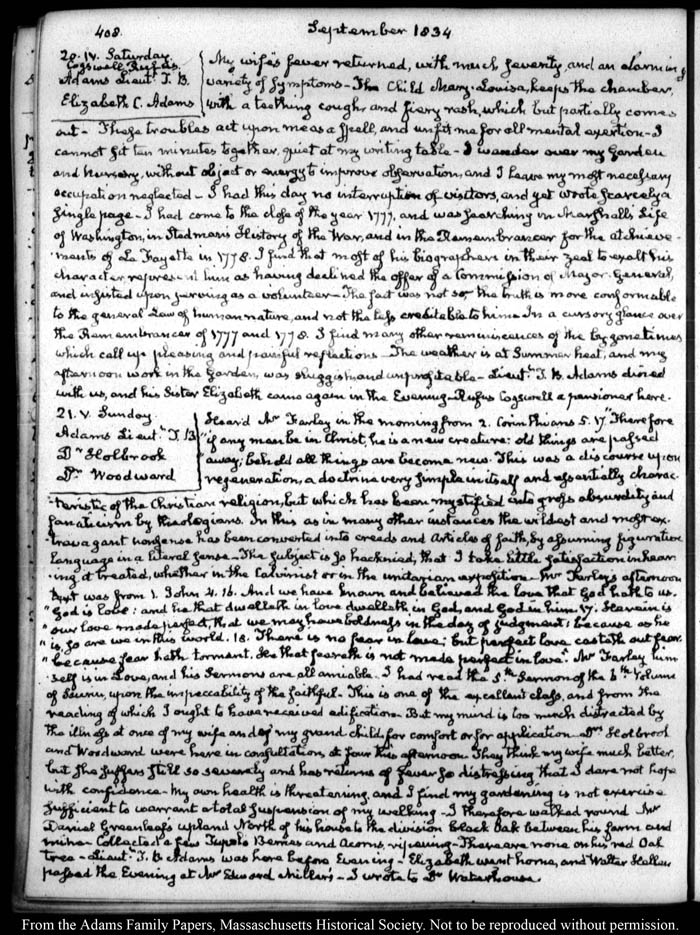 408.
September 1834
20. IV. Saturday.
Cogswell Rufus.
Adams Lieut. T. B.
Elizabeth C. Adams
My wife's fever returned, with much severity, and an alarming
variety of symptoms - The Child Mary-Louisa, keeps the chamber,
with a teething cough and fiery rash, which but partially comes
out - These troubles act upon me as a spell, and unfit me for all mental exertion - I
cannot sit ten minutes together, quiet at my writing table - I wander over my Garden
and Nursery, without object or energy to improve observation, and I leave my most necessary
occupation neglected - I had this day no interruption of visitors, and yet wrote scarcely a
single page - I had come to the close of the year 1777, and was searching in Marshall's Life
of Washington, in Stedman's History of the War, and in the Remembrancer for the atchieve-
ments of La Fayette in 1778. I find that most of his biographers in their zeal to exalt his
character represent him as having declined the offer of a Commission of Major General,
and insisted upon serving as a volunteer - The fact was not so, the truth is more conformable
to the general Law of human nature, and not the less creditable to him - In a cursory glance over
the Remembrancer of 1777 and 1778. I find many other reminiscences of the bygone times
which call up pleasing and painful reflections - The weather is at Summer heat, and my
afternoon work in the Garden, was sluggish and unprofitable - Lieut. T. B. Adams dined
with us, and his Sister Elizabeth came again in the Evening - Rufus Cogswell a pensioner here.
21. V. Sunday.
Adams Lieut. T. B
Dr Holbrook
Dr Woodward
Heard Mr Farley in the morning from 2. Corinthians 5. 17 "Therefore
"if any man be in Christ, he is a new creature: old things are passed
"away; behold all things are become new." This was a discourse upon
regeneration, a doctrine very simple in itself and essentially charac-
teristic of the Christian religion, but which has been mystified into gross absurdity and
fanaticism by theologians. In this as in many other instances the wildest and most ex-
travagant nonsense has been converted into creeds and articles of faith, by assuming figurative
Language in a literal sense - The subject is so hacknied, that I take little satisfaction in hear-
ing it treated, whether in the Calvinist or in the unitarian exposition - Mr Farley's afternoon
text was from 1. John 4. 16. And we have known and believed the love that God hath to us.
"God is love: and he that dwelleth in love dwelleth in God, and God in him. 17. Herein is
"our love made perfect, that we may have boldness in the day of judgment: because as he
"is, so are we in this world. 18. There is no fear in love; but perfect love casteth out fear
"because fear hath torment. He that feareth is not made perfect in love". Mr Farley him-
self is in Love, and his Sermons are all amiable. I had read the 5th Sermon of the 6th Volume
of Saurin, upon the impeccability of the faithful - This is one of the excellent class, and from the
reading of which I ought to have received edification - But my mind is too much distracted by
the illness at once of my wife and of my grand child for comfort or for application - Drs Holbrook
and Woodward were here in consultation at four this afternoon. They think my wife much better,
but she suffers still so severely and has returns of fever so distressing that I dare not hope
with confidence - My own health is threatening, and I find my gardening is not exercise
sufficient to warrant a total suspension of my walking - I therefore walked round Mr
Daniel Greenleaf's upland North of his house to the division black Oak between his farm and
mine - Collected a few Tupelo Berries and Acorns ripening - There are none on his red Oak
tree - Lieut. T. B. Adams was here before Evening - Elizabeth went home, and Walter Hellen
passed the Evening at Mr Edward Miller's - I wrote to Dr Waterhouse.
From the Adams Family Papers, Massachusetts Historical Society. Not to be reproduced without permission.